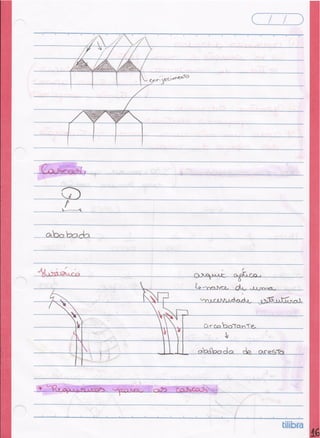 enrijecimento
Cascas
abobada
Histórico
arquit. gótica
↳ nasce de uma
necessidade estrutural
arcobotante
↓
abóbada de aresta
* Requisitos para as cascas
tilibra
16